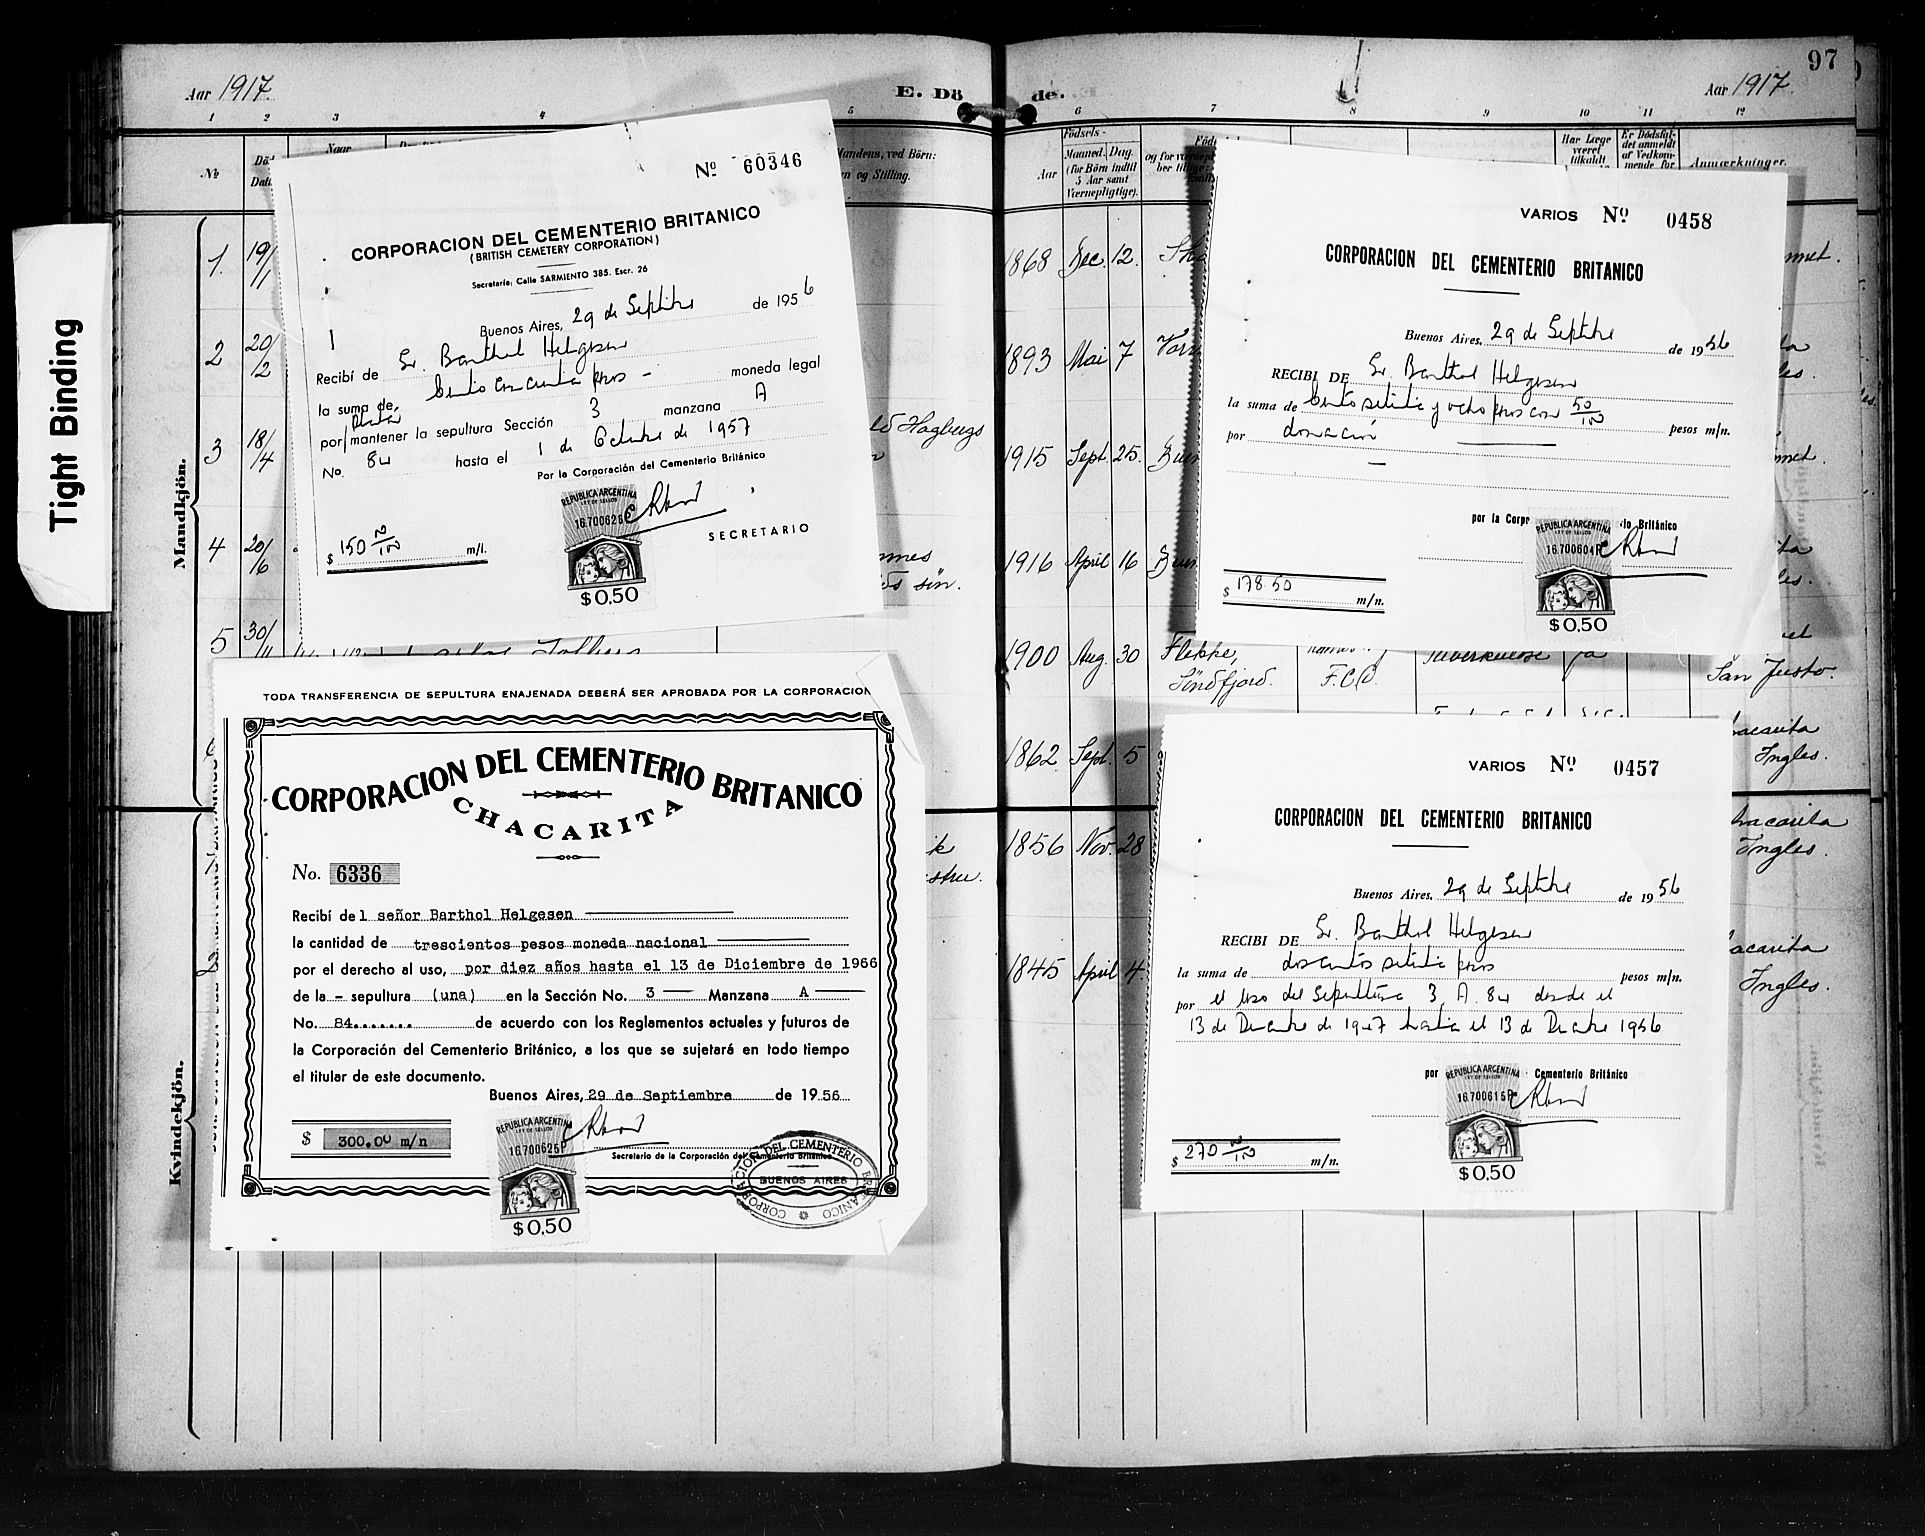 97
Aar 1917.
E. Dö
de.
Aar 1917.
1 2 3 4 5 6 7 8 9 10 11 12
No
Naar
Mandens, ved Börn:
n og Stilling.
Aar
Födsels-
Maaned. Dag.
(for Börn indtil
5 Aar samt
Værnepligtige).
Har Læge
været
tilkaldt
Er Dödsfal-
det anmeldt
af Vedkom-
mende for
Anmærkninger.
Tight Binding
Mandkjön.
Kvindekjön.
1. 19/1
2 20/2
3 18/4
4 20/6
5 30/11
Hagbergs
sin.
1868 Dec. 12.
1893 Mai 7
1915 Sept. 25.
1916 April 16
1900 Aug. 30 Flekke,
Söndfjord.
F.C.O.
Tuberkulose ja
San Justo.
1862 Sept. 5
Ingles.
1856 Nov. 28
Ingles.
1845 April 4.
Ingles.
Nº 60346
CORPORACION DEL CEMENTERIO BRITANICO
(BRITISH CEMETERY CORPORATION)
Secretaria: Calle SARMIENTO 385. Escr. 26
Buenos Aires, 29 de Septbre de 1956
Recibí de Sr. Barthol Helgesen
la suma de, Ciento cincuenta pesos - moneda legal
por mantener la sepultura Sección 3 manzana A
No. 84 hasta el 1 de Octubre de 1957
Por la Corporación del Cementerio Británico
REPUBLICA ARGENTINA
LEY DE SELLOS
SECRETARIO
$ 150 m/l.
$0,50
VARIOS Nº 0458
CORPORACION DEL CEMENTERIO BRITANICO
Buenos Aires, 29 de Septbre de 1956
RECIBI DE Sr. Barthol Helgesen
la suma de Ciento setenta y ocho pesos con 50/100 pesos m/n.
por donación
por la Corpr
io Británico
REPUBLICA ARGENTINA
16.700604P
$ 178.50 m/n.
$0,50
TODA TRANSFERENCIA DE SEPULTURA ENAJENADA DEBERÁ SER APROBADA POR LA CORPORACION
CORPORACION DEL CEMENTERIO BRITANICO
CHACARITA
No. 6336
Recibí del señor Barthol Helgesen
la cantidad de trescientos pesos moneda nacional
por el derecho al uso, por diez años hasta el 13 de Diciembre de 1966
de la - sepultura (una) en la Sección No. 3 Manzana A
No. 84....... de acuerdo con los Reglamentos actuales y futuros de
la Corporación del Cementerio Británico, a los que se sujetará en todo tiempo
el titular de este documento.
Buenos Aires, 29 de Septiembre de 1956
$ 300.00 m/n
REPUBLICA ARGENTINA
LEY DE SELLOS
Secretario de la Corporación del Cementerio Británico
CORPORACION DEL CEMENTERIO BRITANICO
BUENOS AIRES
$0,50
VARIOS Nº 0457
CORPORACION DEL CEMENTERIO BRITANICO
Buenos Aires, 29 de Septbre de 1956
RECIBI DE Sr. Barthol Helgesen
la suma de doscientos setenta pesos pesos m/n.
por el uso del Sepultura 3 A 84 desde el
13 de Dicembre de 1947 hasta el 13 de Dicbre 1956
por
Cementerio Británico
REPUBLICA ARGENTINA
LEY DE SELLOS
16.700615P
$ 270 m/n.
$0,50